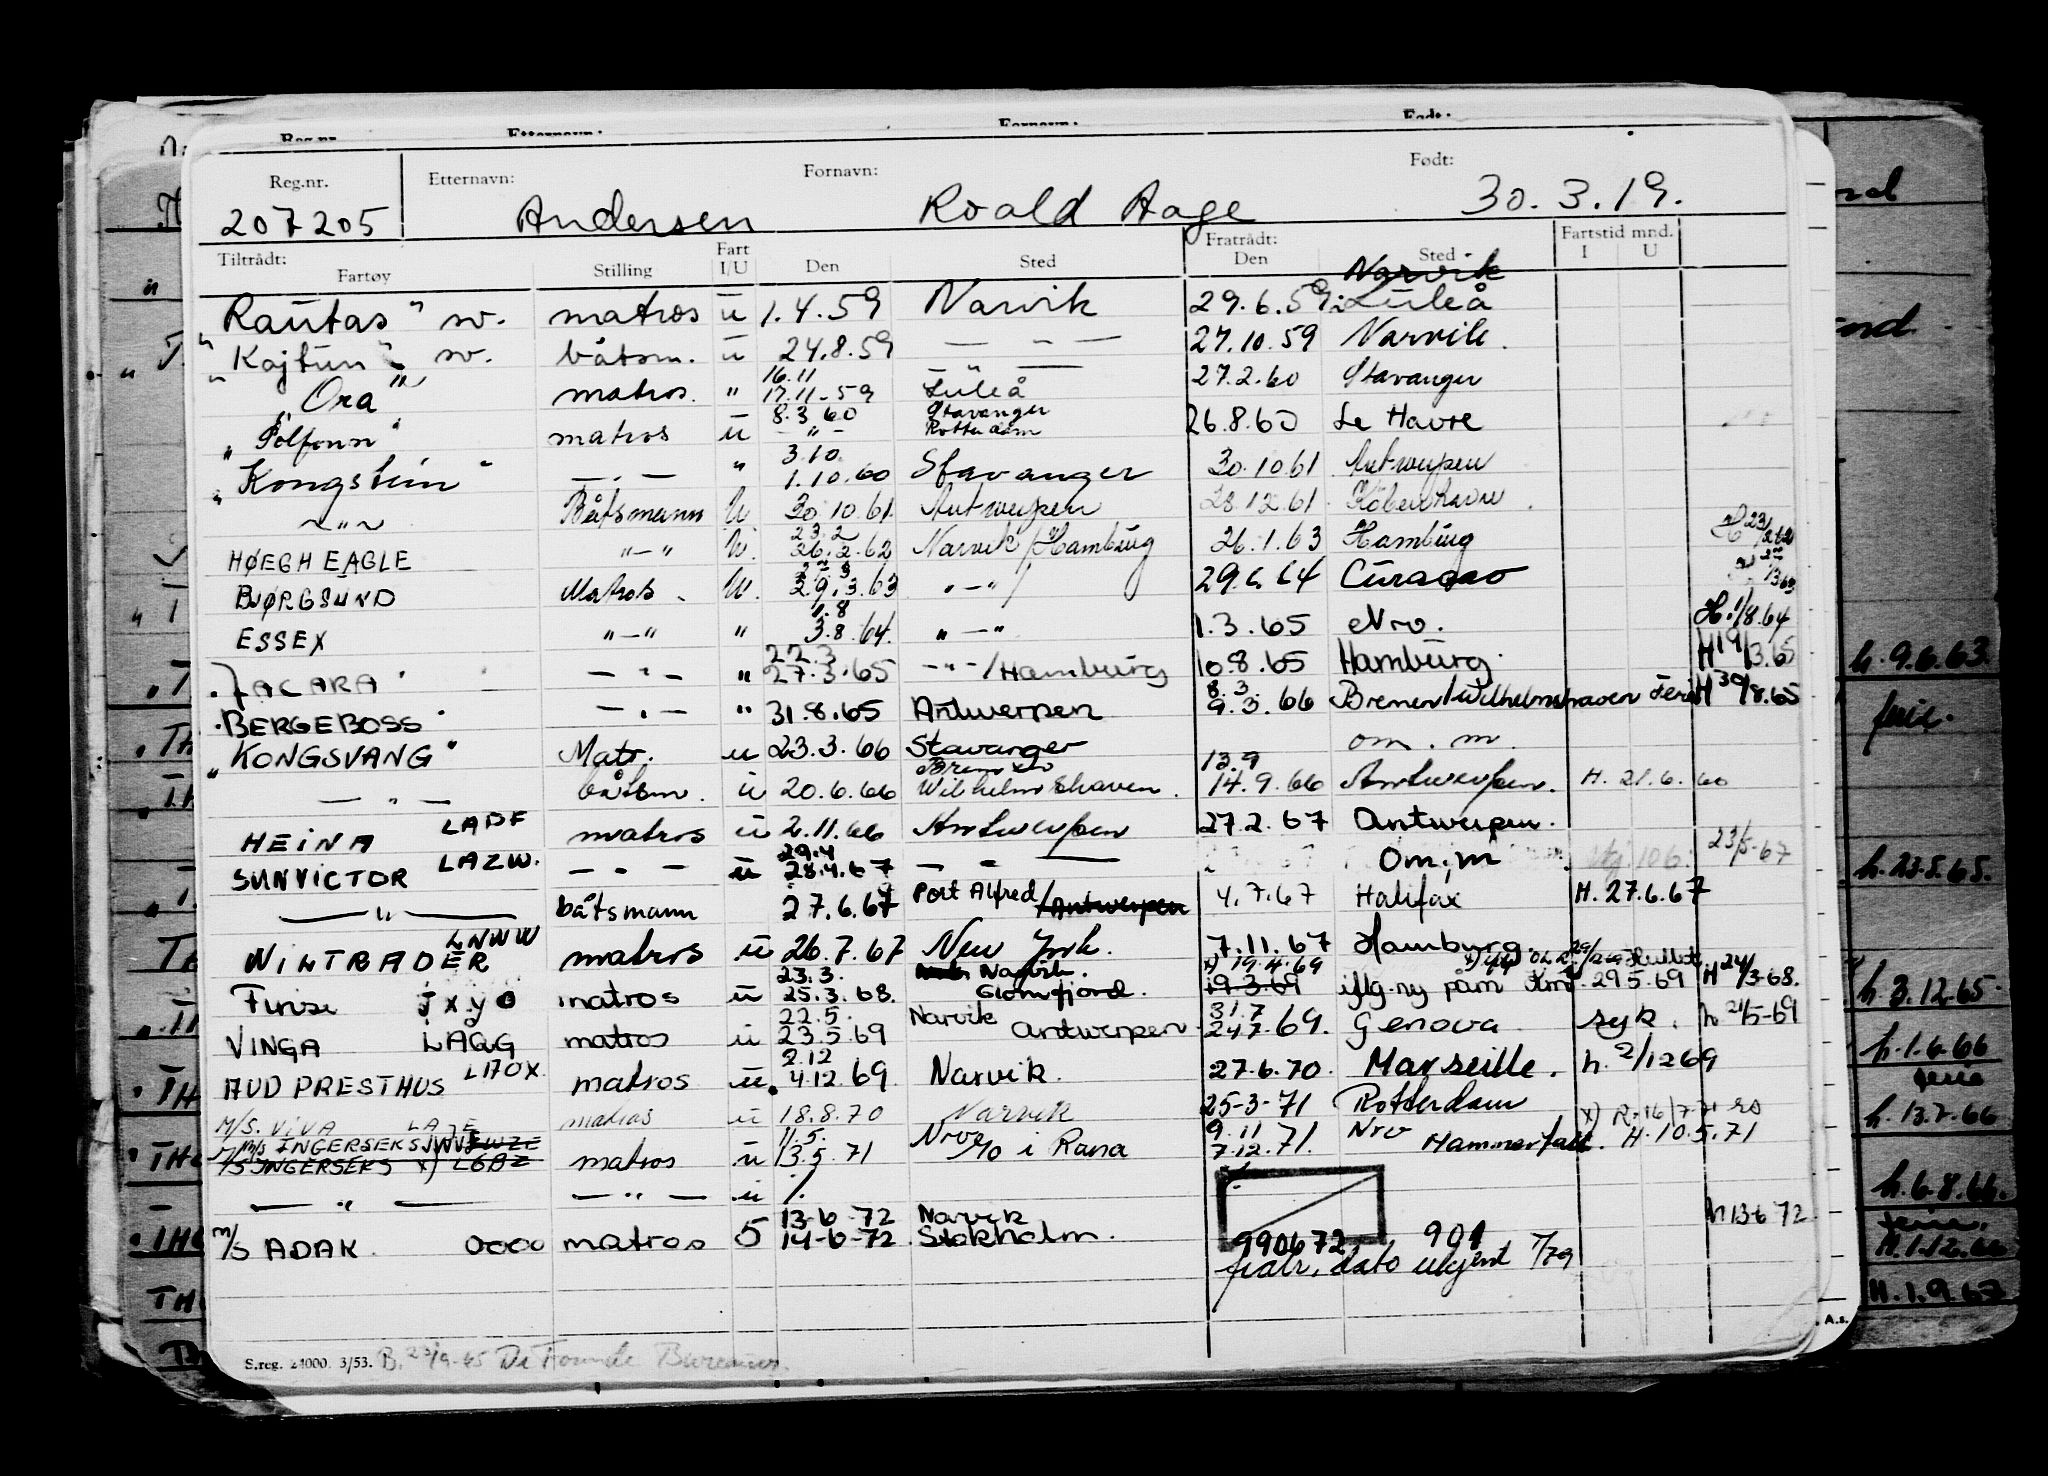 Reg.nr. Etternavn: Fornavn: Født:
207205 Andersen Roald Aage 30.3.19.
Tiltrådt: Fart Fratrådt: Fartstid mnd.
Fartøy Stilling I/U Den Sted Den Sted I U
Narvik
"Rautas" sv. matros u 1.4.59 Narvik 29.6.59 Luleå
"Kajtum" sv. båtsm. u 24.8.59 — " — 27.10.59 Narvik.
16.11
"Ora" matros. " 17.11.59 Luleå 27.2.60 Stavanger
8.3 60 Stavanger
"Polfonn" matros u — " — Rotterdam 26.8.60 Le Havre
3.10
"Kongstein" — " — " 1.10.60 Stavanger 30.10.61 Antwerpen
— " — Båtsmann U 30.10.61 Antwerpen 28.12.61 Köbenhavn
23.2
HØEGH EAGLE " — " U. 26.2.62 Narvik/Hamburg 26.1.63 Hamburg
BJØRGSUND Matros. U. 29.3.63 " — " / 29.6.64 Curacao
1.8
ESSEX " — " " 3.8.64. " — " 1.3.65 Nrv. H. 1/8.64
22.3
"JACARA" — " — " 27.3.65 — " — /Hamburg 10.8.65 Hamburg. H 19/3.65
8.3.
"BERGEBOSS" — " — " 31.8.65 Antwerpen 9.3.66 Bremen/Wilhelmshaven Ferie H 30/8.65
"KONGSVANG" Matr. u 23.3.66 Stavanger om. m.
13.9
— " — båtsm. u 20.6.66 Wilhelmshaven. 14.9.66 Antwerpen. H. 21.6.60
HEINA LADF matros u 2.11.66 Antwerpen 27.2.67 Antwerpen.
29.4
SUNVICTOR LAZW. — " — u 28.4.67 — " — Om. m 23/5-67
— " — båtsmann 27.6.67 Port Alfred /Antwerpen 4.7.67 Halifax H. 27.6.67
WILTRADER LNWW matros u 26.7.67 New York. 7.11.67 Hamburg.
23.3. Narvik. x) 19.4.69
Finse JXYO matros u 25.3.68. Glomfjord. 19.3.69 iflg. ny påm 29.5.69 H 24/3-68.
22.5. 31.7
VINGA LAGG matros u 23.5.69 Narvik Antwerpen. 24.7.69. Genova syk. h 21/5-69
2.12
AUD PRESTHUS LAOX matros u 4.12.69 Narvik. 27.6.70. Marseille. h. 2/1269
M/S. VIVA LAJE matros u 18.8.70 Narvik 25-3-71 Rotterdam
11.5. 9.11
M/S INGERSEKS matros u 13.5.71 Nrv Mo i Rana 7.12.71. Nrv Hammerfall. H. 10.5.71
M/S INGERSEKS x) LGBZ
— " — — " — u /.
13-6-72 Narvik h 13 6 72
M/S ADAK. OOOO matros 5 14-6-72 Stokholm. 990672 901
fratr. dato ukjent 7/79
S.reg. 24000. 3/53. B. 23/9-65
h. 9.6.63.
ferie.
h. 23.5.65.
h. 3.12.65
h. 1.6.66
ferie
h. 13.7.66
h. 6.8.66.
ferie.
H. 1.12.66
H. 1.9.67
A.s.